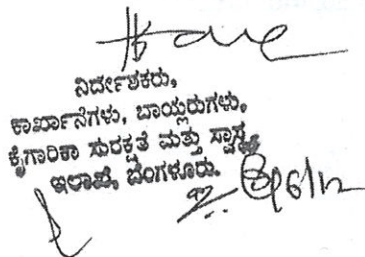 ನಿರ್ದೇಶಕರು,
ಕಾರ್ಖಾನೆಗಳು, ಬಾಯ್ಲರುಗಳು,
ಕೈಗಾರಿಕಾ ಸುರಕ್ಷತೆ ಮತ್ತು ಸ್ವಾಸ್ಥ್ಯ
ಇಲಾಖೆ, ಬೆಂಗಳೂರು.